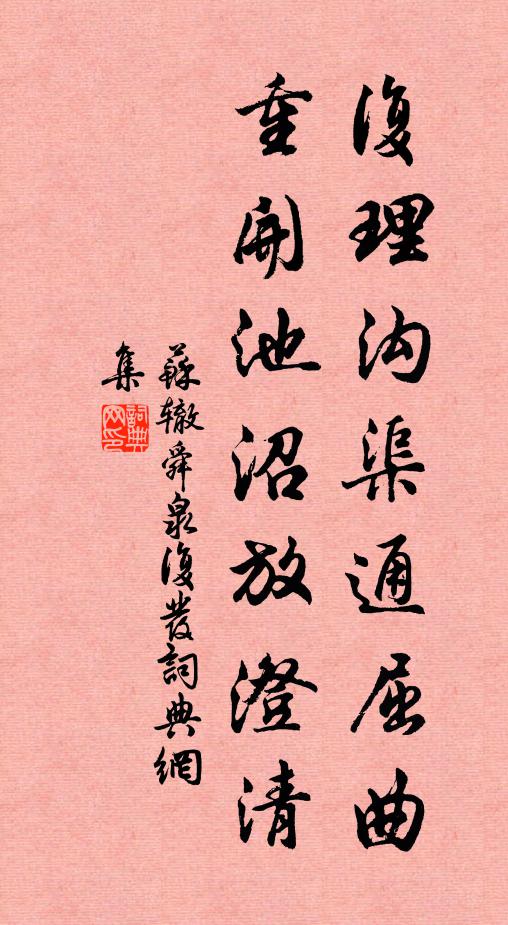 復理沟渠通屈曲
重開池沼放澄清
蘇辙舜泉復發詞典網
集
詞典
网印